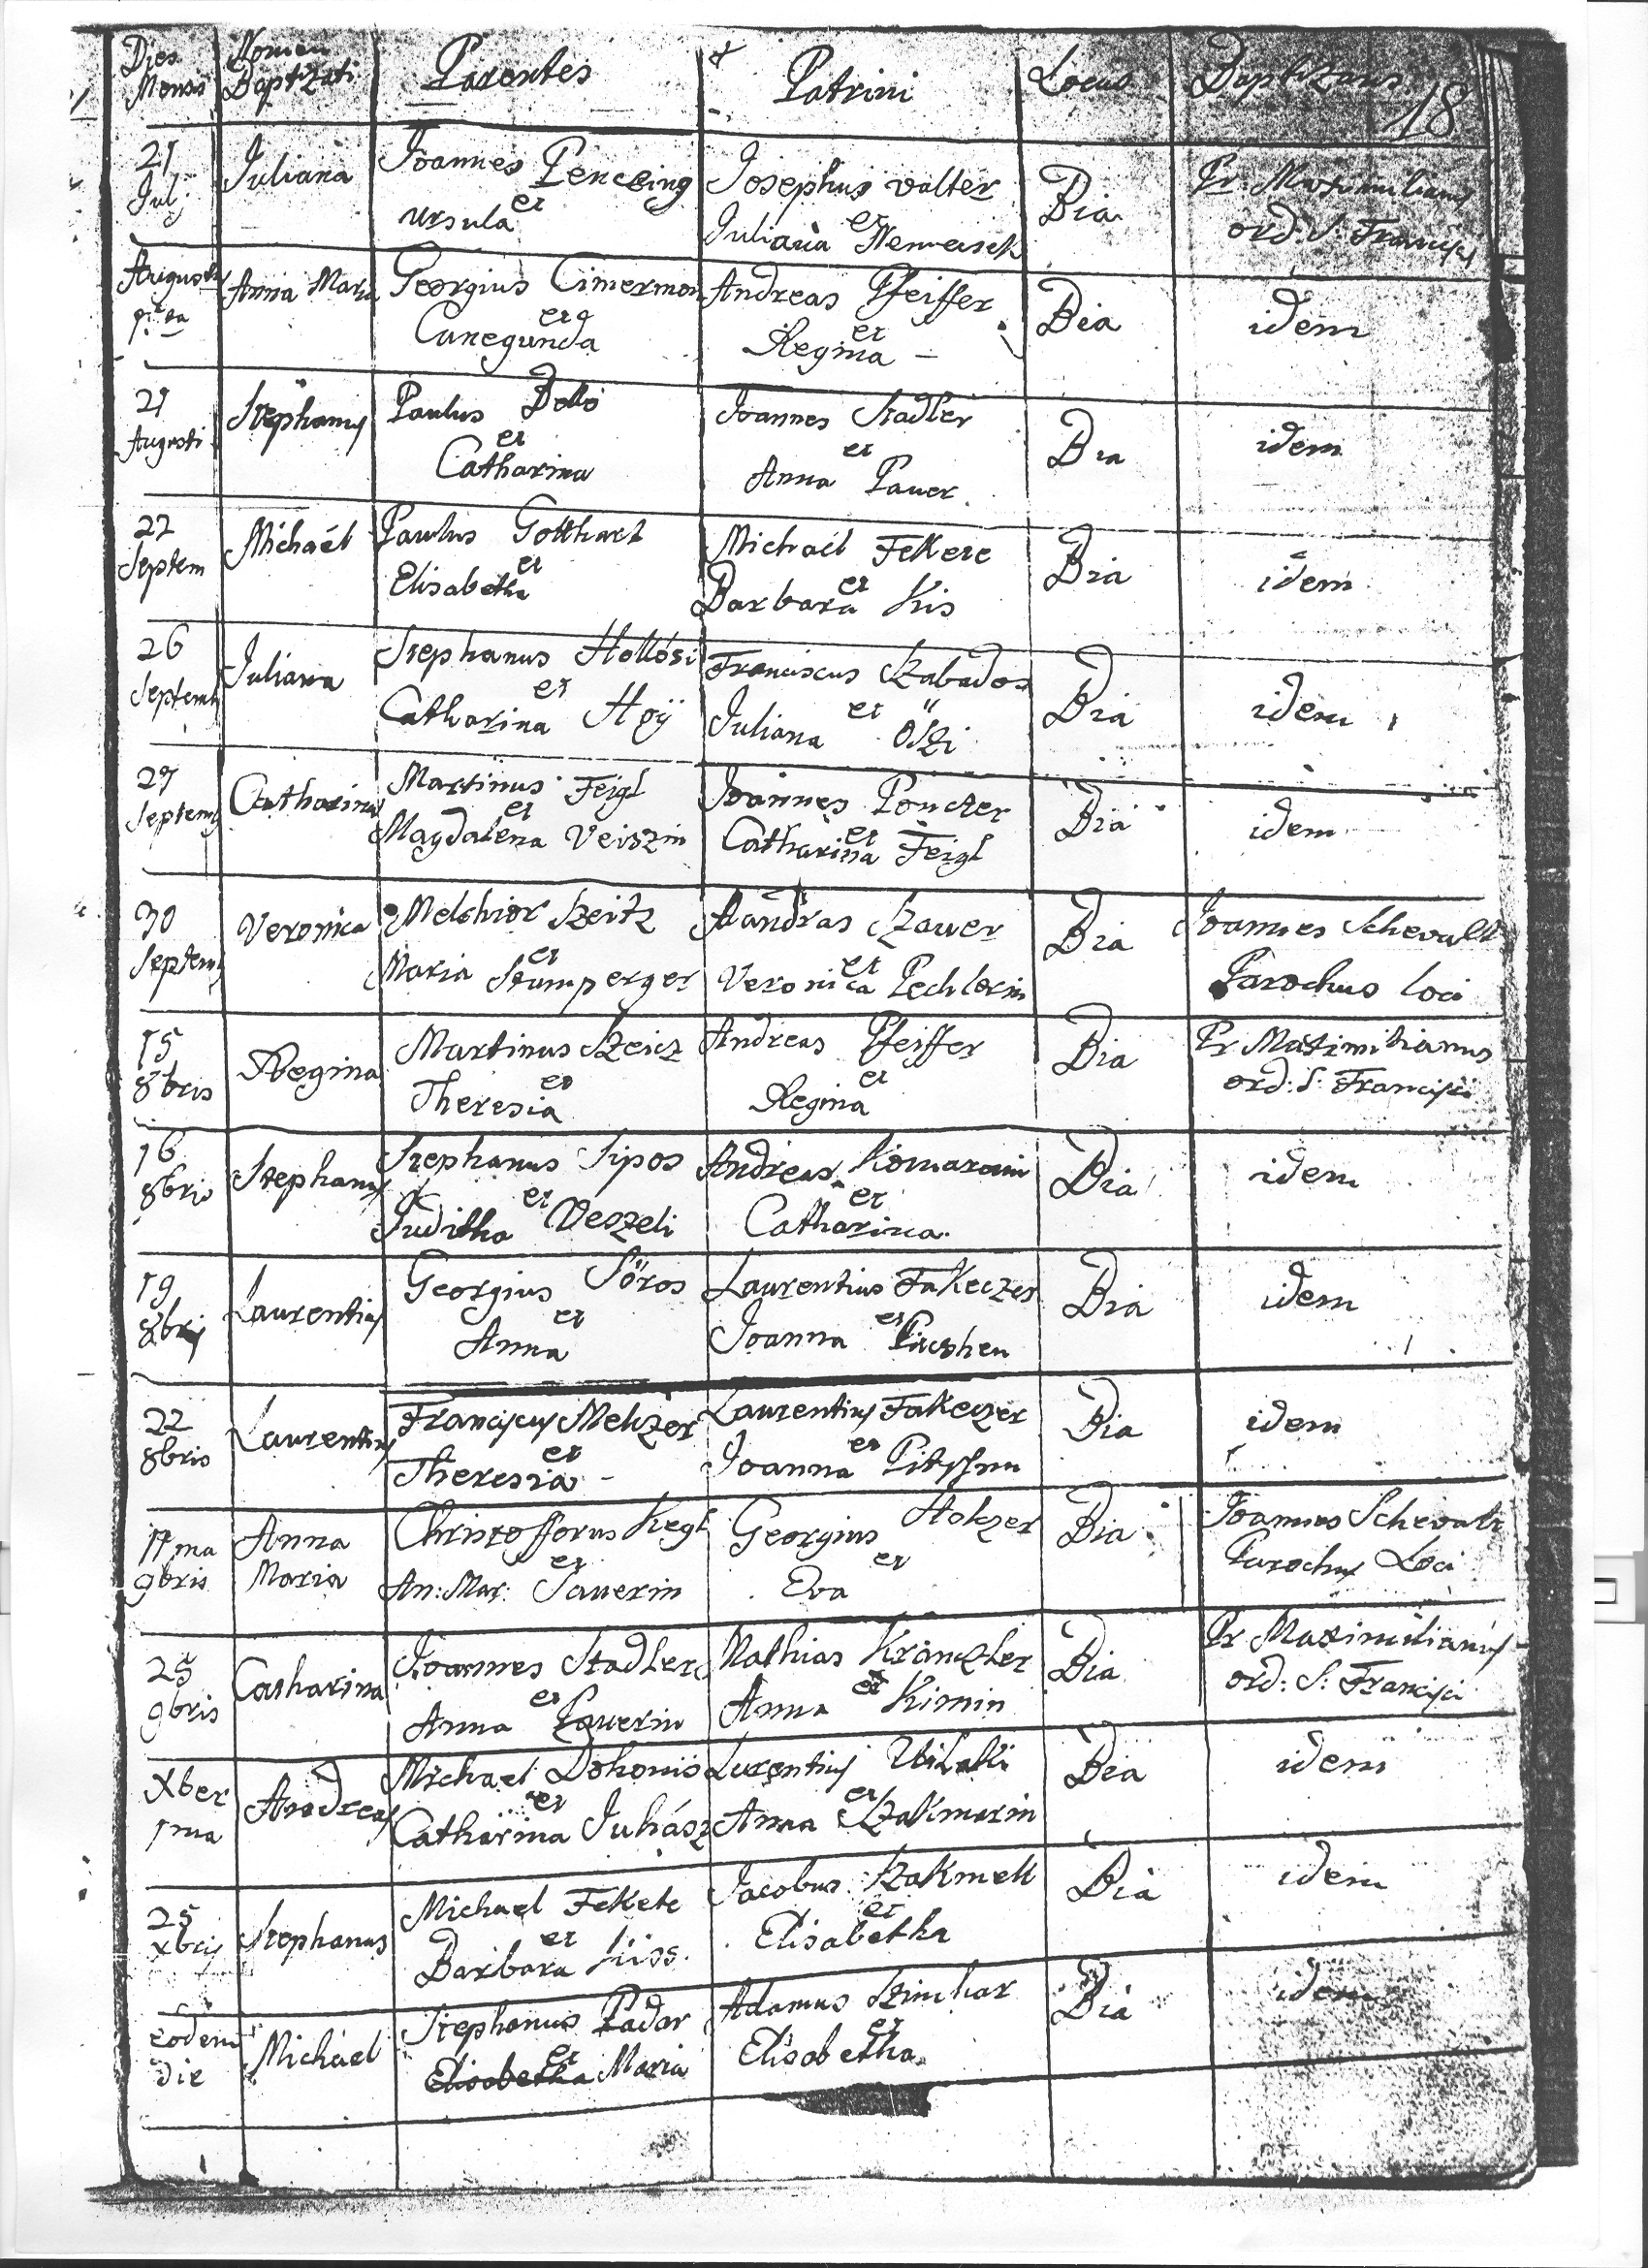 Dies Mensis Nomen Baptizati Parentes Patrini Locus Baptizans 18
21 Julj Juliana Joannes Penczing et Ursula Josephus Valter et Juliana Bia Pr. Maximilianus ord: S: Francisci
Augusti 1ma Anna Maria Georgius Cimerman et Cunegunda Andreas Pfeiffer et Regina Bia idem
21 Augusti Stephanus Paulus et Catharina Joannes Stadler et Anna Pauer Bia idem
22 Septem Michaël Paulus Gotthart et Elisabetha Michaël Fekete et Barbara Kis Bia idem
26 Septemb Juliana Stephanus Hollósi et Catharina Franciscus Szabados et Juliana Öszi Bia idem
27 Septemb Catharina Martinus Feigl et Magdalena Veiszin Joannes et Catharina Feigl Bia idem
30 Septemb Veronica Melchior Szeitz et Maria Stumperger Andras Szauer et Veronica Pechlerin Bia Joannes Schevalt Parochus loci
15 8bris Regina Martinus Szeicz et Theresia Andreas Pfeiffer et Regina Bia Pr Maximilianus ord: S: Francisci
16 8bris Stephanus Stephanus Sipos et Juditha Veszeli Andreas Komaromi et Catharina Bia idem
19 8bris Laurentius Georgius Sörös et Anna Laurentius Fakeczer et Joanna Bia idem
22 8bris Laurentius Franciscus Melczer et Theresia Laurentius Fakeczer et Joanna Bia idem
17ma 9bris Anna Maria Christofforus Kegl et An: Mar: Sauerin Georgius Holczer et Eva Bia Joannes Schevalt Parochus Loci
25 9bris Catharina Joannes Stadler et Anna Pauerin Mathias Kränczler et Anna Kimin Bia Pr Maximilianus ord: S: Francisci
Xber 1ma Andreas Michael et Catharina Juhász Lurentius Uilaki et Anna Szakmarin Bia idem
25 Xbris Stephanus Michael Fekete et Barbara Kiss Jacobus et Elisabetha Bia idem
Eodem die Michael Stephanus Padar et Elisabetha Maria Adamus et Elisabetha Bia idem